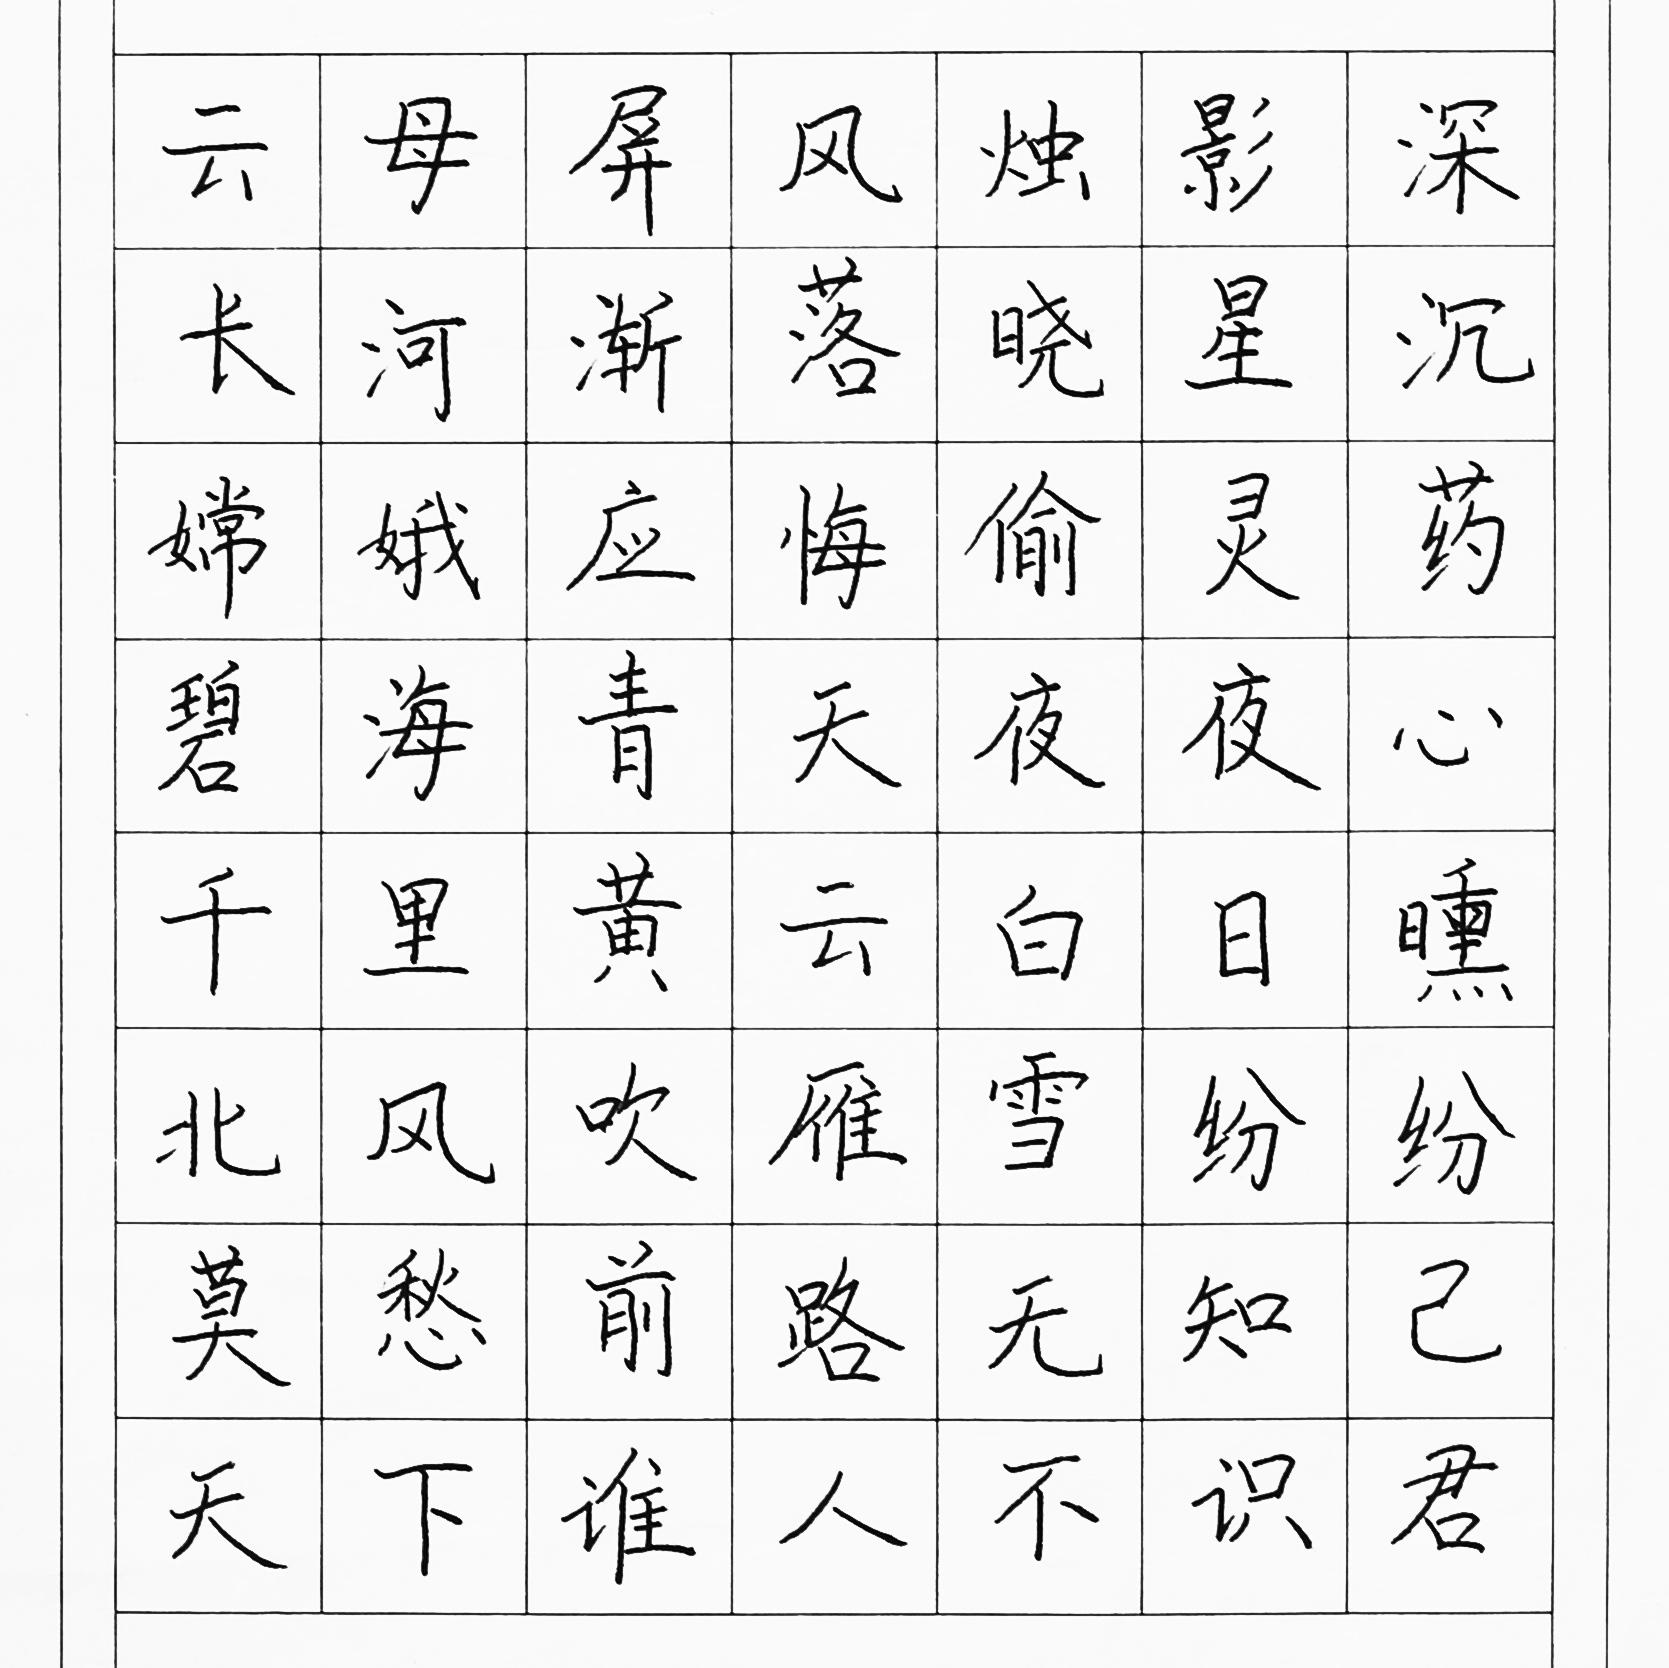 云母屏风烛影深
长河渐落晓星沉
嫦娥应悔偷灵药
碧海青天夜夜心
千里黄云白日曛
北风吹雁雪纷纷
莫愁前路无知己
天下谁人不识君